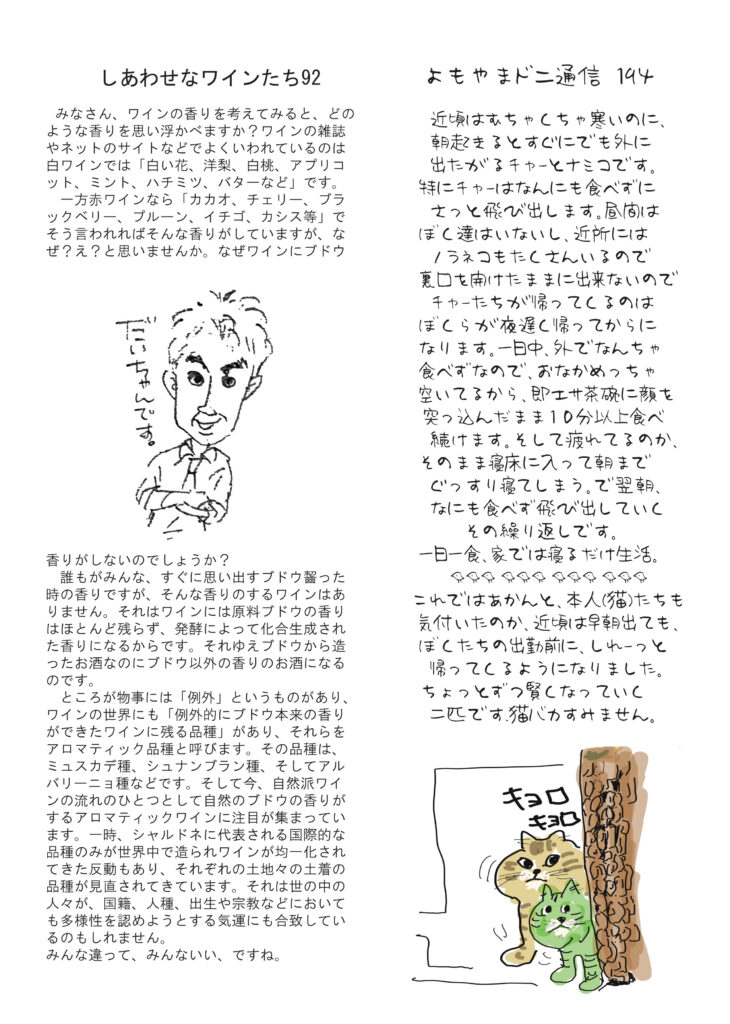 しあわせなワインたち92
みなさん、ワインの香りを考えてみると、どの
ような香りを思い浮かべますか？ワインの雑誌
やネットのサイトなどでよくいわれているのは
白ワインでは「白い花、洋梨、白桃、アプリコ
ット、ミント、ハチミツ、バターなど」です。
一方赤ワインなら「カカオ、チェリー、ブラ
ックベリー、プルーン、イチゴ、カシス等」で
そう言われればそんな香りがしていますが、な
ぜ？え？と思いませんか。なぜワインにブドウ
だいちゃんです。
香りがしないのでしょうか？
誰もがみんな、すぐに思い出すブドウ齧った
時の香りですが、そんな香りのするワインはあ
りません。それはワインには原料ブドウの香り
はほとんど残らず、発酵によって化合生成され
た香りになるからです。それゆえブドウから造
ったお酒なのにブドウ以外の香りのお酒になる
のです。
ところが物事には「例外」というものがあり、
ワインの世界にも「例外的にブドウ本来の香り
ができたワインに残る品種」があり、それらを
アロマティック品種と呼びます。その品種は、
ミュスカデ種、シュナンブラン種、そしてアル
バリーニョ種などです。そして今、自然派ワイ
ンの流れのひとつとして自然のブドウの香りが
するアロマティックワインに注目が集まってい
ます。一時、シャルドネに代表される国際的な
品種のみが世界中で造られワインが均一化され
てきた反動もあり、それぞれの土地々の土着の
品種が見直されてきています。それは世の中の
人々が、国籍、人種、出生や宗教などにおいて
も多様性を認めようとする気運にも合致してい
るのもしれません。
みんな違って、みんないい、ですね。
よもやまドニ通信 194
近頃はむちゃくちゃ寒いのに、
朝起きるとすぐにでも外に
出たがるチャーとナミコです。
特にチャーはなんにも食べずに
さっと飛び出します。昼間は
ぼく達はいないし、近所には
ノラネコもたくさんいるので
裏口を開けたままに出来ないので
チャーたちが帰ってくるのは
ぼくらが夜遅く帰ってからに
なります。一日中、外でなんちゃ
食べずなので、おなかめっちゃ
空いてるから、即エサ茶碗に顔を
突っ込んだまま10分以上食べ
続けます。そして疲れてるのか、
そのまま寝床に入って朝まで
ぐっすり寝てしまう。で翌朝、
なにも食べず飛び出していく
その繰り返しです。
一日一食、家では寝るだけ生活。
これではあかんと、本人(猫)たちも
気付いたのか、近頃は早朝出ても、
ぼくたちの出勤前に、しれーっと
帰ってくるようになりました。
ちょっとずつ賢くなっていく
二匹です.猫バカすみません。
キョロ
キョロ